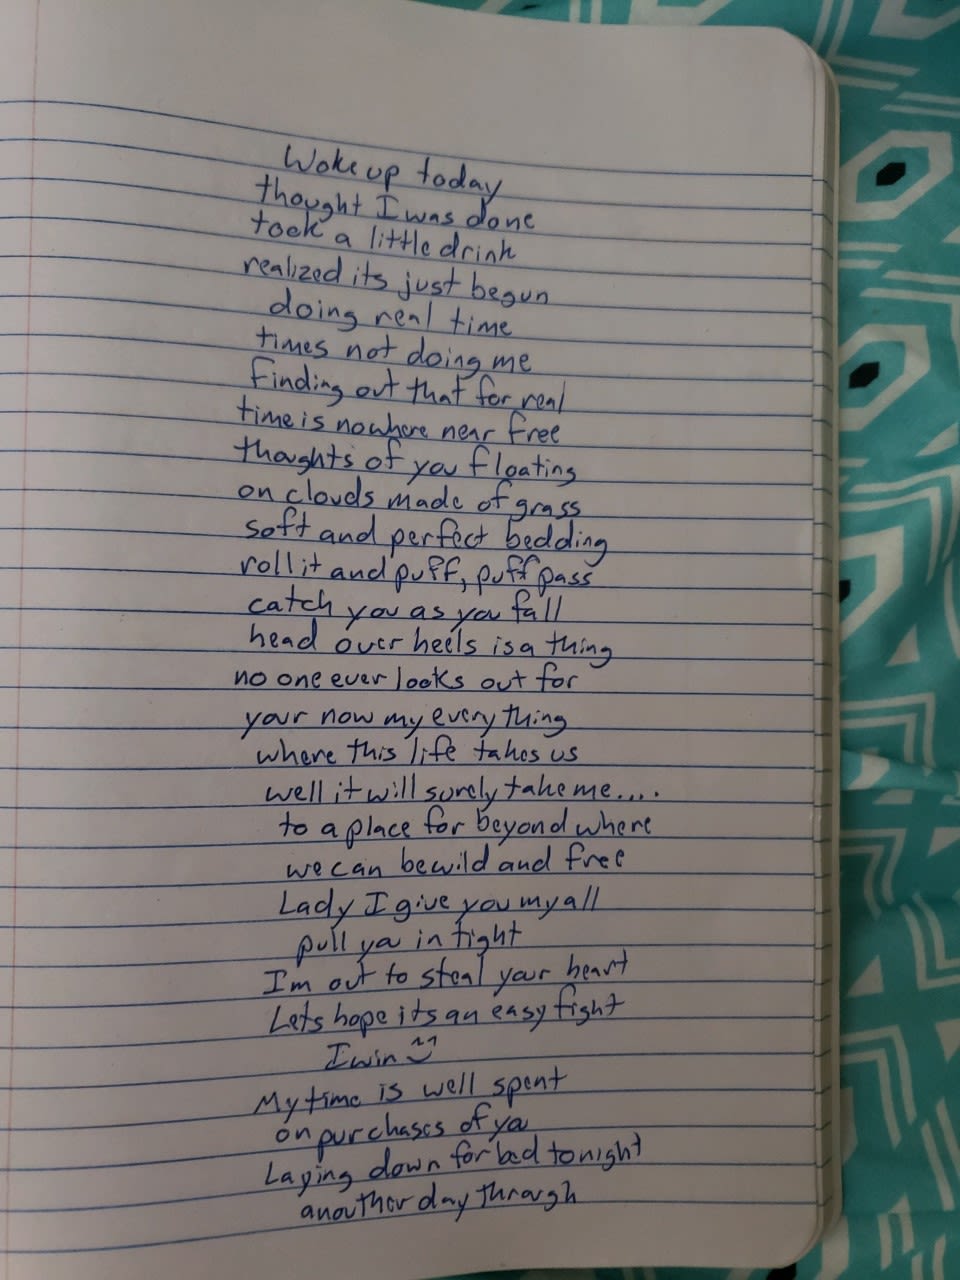 Woke up today
thought I was done
took a little drink
realized its just begun
doing real time
times not doing me
finding out that for real
time is nowhere near free
thoughts of you floating
on clouds made of grass
soft and perfect bedding
roll it and puff, puff pass
catch you as you fall
head over heels is a thing
no one ever looks out for
your now my everything
where this life takes us
well it will surely take me....
to a place far beyond where
we can be wild and free
Lady I give you my all
pull ya in tight
I'm out to steal your heart
Lets hope its an easy fight
I win
My time is well spent
on purchases of you
Laying down for bed tonight
anouther day through